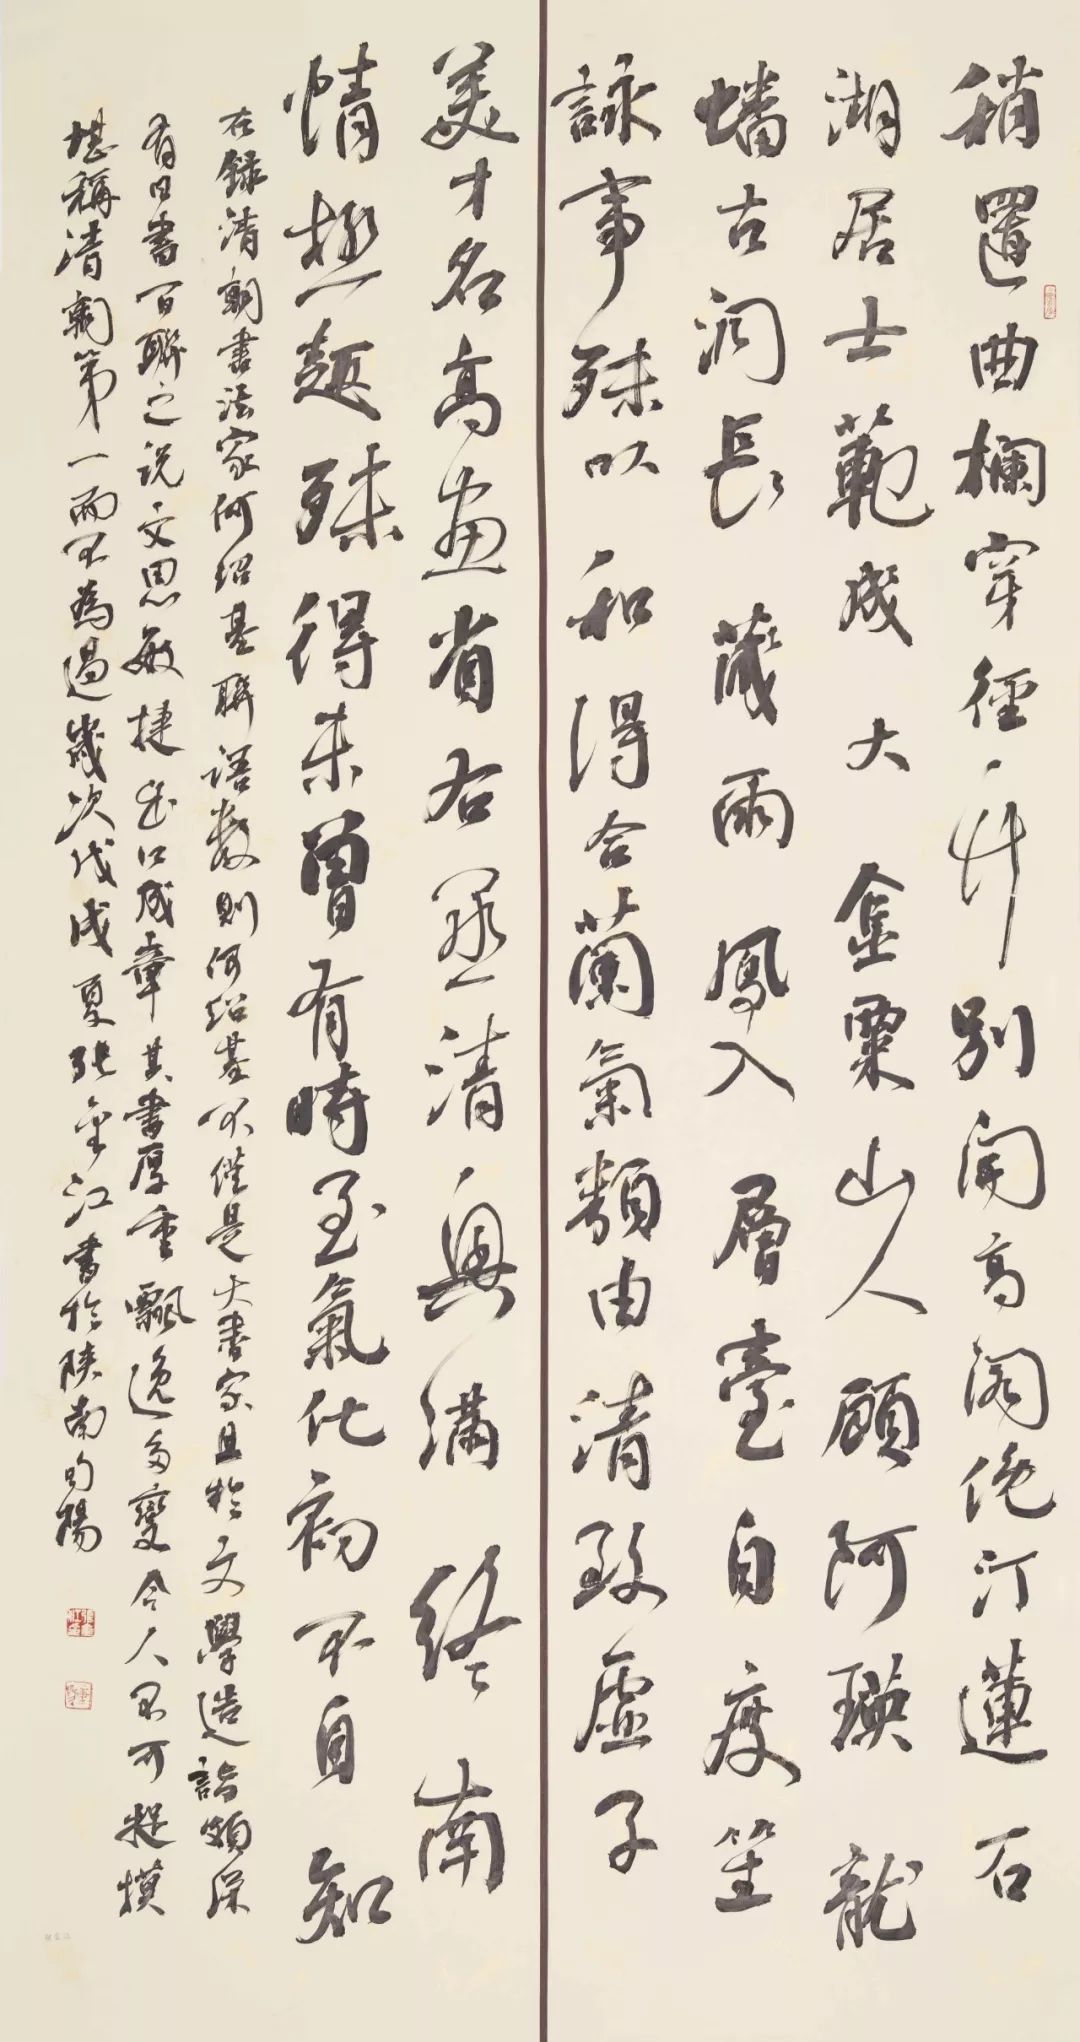 稍置曲欄穿徑竹別開高閣俛汀蓮石
湖居士範成大金粟山人顧阿瑛龍
蟠古洞長藏雨鳳入層臺自度笙
詠事殊以和得合蘭氣類由清致虛子
美才名高畫省右丞清興滿終南
情極趣殊得未曾有時至氣化初不自知
在錄清朝書法家何紹基聯語數則何紹基不僅是大書家且於文學造詣頗深
有日書百聯之說文思敏捷出口成章其書厚重飄逸多變令人不可捉摸
堪稱清朝第一而不為過歲次戊戌夏張金江書於陝南旬陽